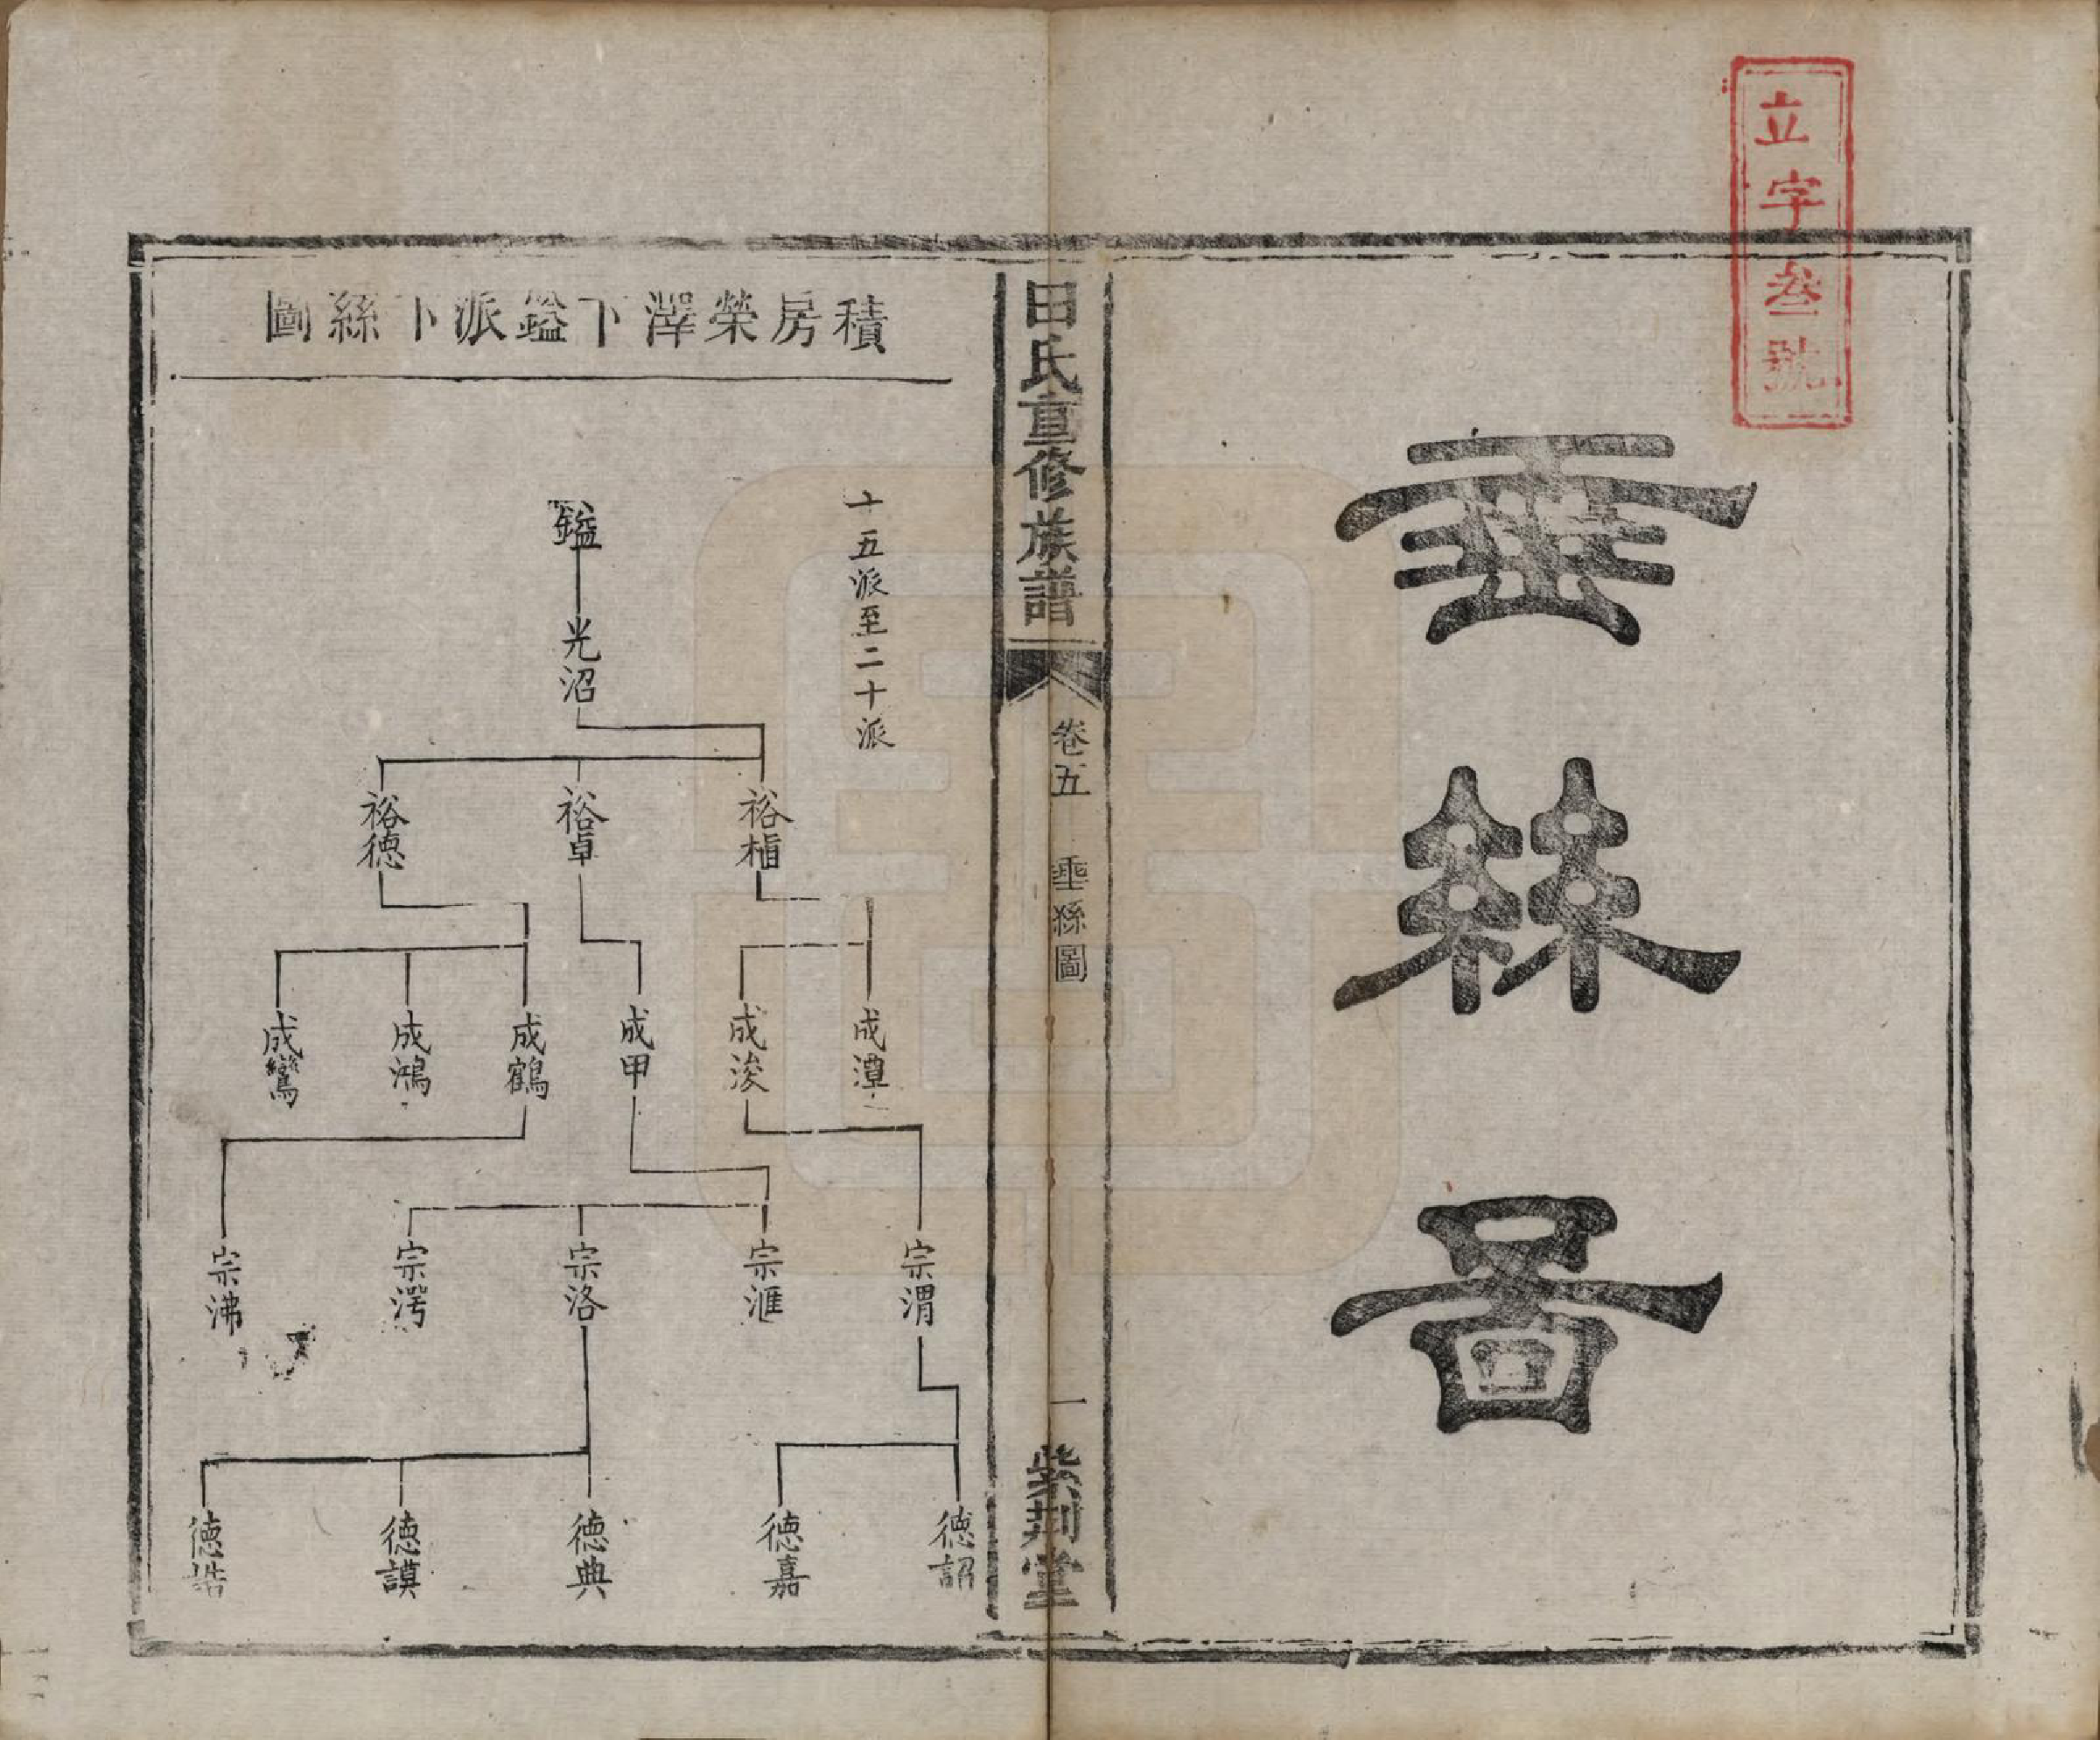 立字叁號
垂絲圖
田氏重修族譜
卷五 垂絲圖
一 紫荆堂
積房榮澤下鎰派下絲圖
十五派至二十派
鎰
光沼
裕楯 裕卓 裕德
成潭 成浚 成甲 成鶴 成鴻 成鸞
宗渭 宗滙 宗洛 宗湾 宗沸
德詔 德嘉 德典 德謨 德誥